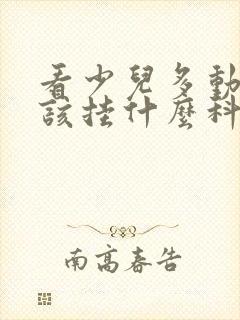 看少兒多動
該挂什麼科
南高春告